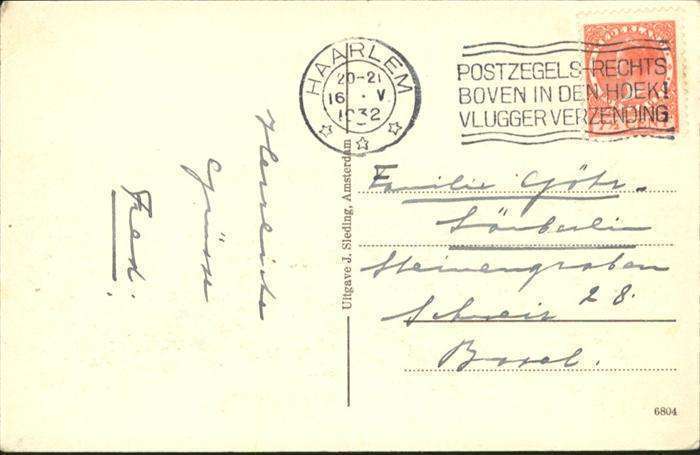 HAARLEM
20-21
16 . V
1932
NEDERLAND
POSTZEGELS RECHTS
BOVEN IN DEN HOEK!
VLUGGER VERZENDING
Herzliche
Grüsse
Fred.
Uitgave J. Sleding, Amsterdam
Familie
Steinengraben
28.
Schweiz
Basel.
6804